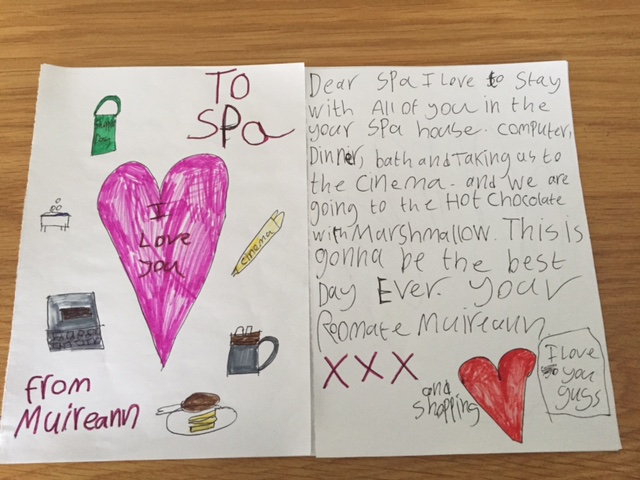 TO
SPa
I
Love
you
cinema
from
Muireann
Dear Spa I Love to Stay
with All of you in the
your Spa house. computer,
Dinner, bath and Taking us to
the Cinema. and We are
going to the Hot Chocolate
with Marshmallow. This is
gonna be the best
Day Ever. your
Roomate Muireann
XXX
and
shopping
I Love
you
guys